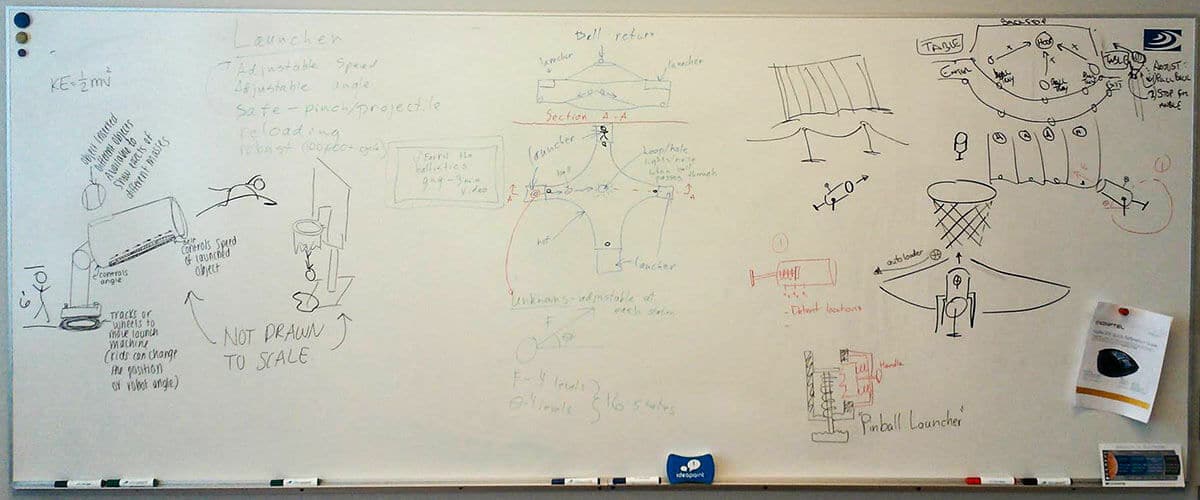 KE=½mv²
Launcher
Adjustable Speed
Adjustable angle
Safe - pinch/projectile
reloading
robust
object launched
different objects
available to
show effects of
different masses
controls speed
of launched
object
controls
angle
6'
Tracks or
wheels to
move launch
machine
(kids can change
the position
or robot angle)
NOT DRAWN
TO SCALE
Ball return
launcher
launcher
Section A-A
launcher
Loop/hole
lights/noise
when ball
passes through
ball
A
A
net
launcher
ballistics
gag - 3 min
video
Unknowns - adjustable at
each station
F
θ
F - 4 levels
θ - 4 levels
16 states
BACKSTOP
TABLE
HOOP
TABLE
EXIT
ADJUST:
1) PULL BACK
2) STOP FOR
ANGLE
1
auto loader
1
- Detent locations
-
Handle
"Pinball Launcher"
ideapoint